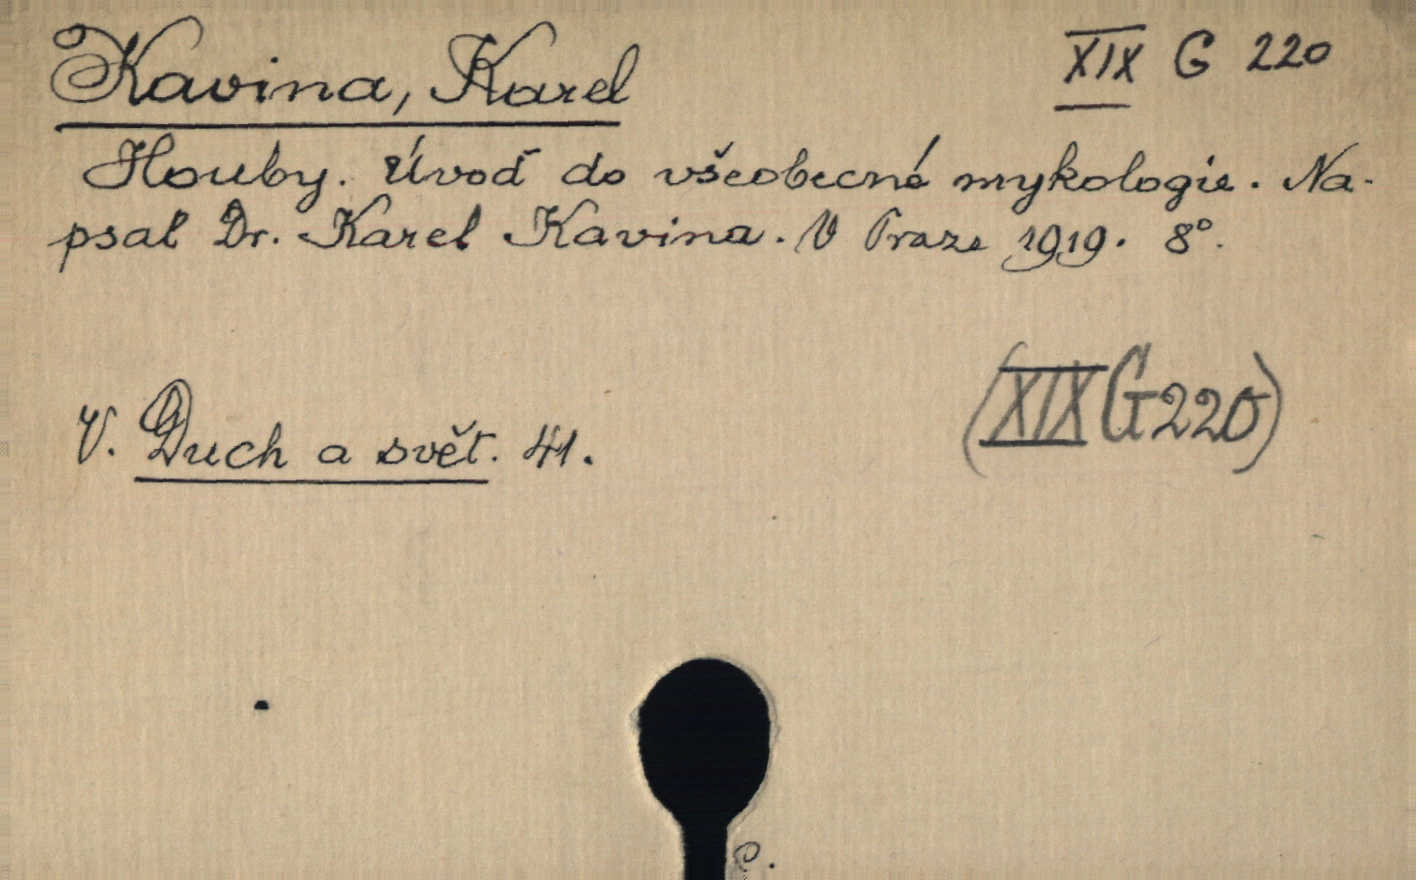 Kavina, Karel XIX G 220
Houby. Úvod do všeobecné mykologie. Na-
psal Dr. Karel Kavina. V Praze 1919. 8°.
(XIX G 220)
V. Duch a svět. 41.